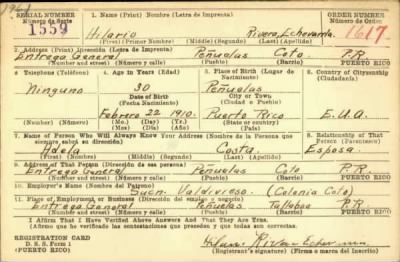 1941
SERIAL NUMBER
Número de Serie
1. Name (Print) Nombre (Letra de Imprenta)
ORDER NUMBER
Número de Orden
1559
Hilario Rivera Echevarria
1617
(First) (Primer Nombre) (Middle) (Segundo Nombre) (Last) (Apellido)
2. Address (Print) Dirección (Letra de Imprenta)
Entrega General Peñuelas Coto P.R.
PUERTO RICO
3. Telephone (Teléfono)
4. Age in Years (Edad)
5. Place of Birth (Lugar de Nacimiento)
6. Country of Citizenship (Ciudadanía)
Ninguno
30
Peñuelas
Date of Birth
(Fecha Nacimiento)
City or Town
(Ciudad o Pueblo)
Febrero 22 1910.
Puerto Rico
E.U.A.
(Mo.) (Day) (Yr.)
(Mes) (Día) (Año)
State or country
(Estado o País)
7. Name of Person Who Will Always Know Your Address (Nombre de la Persona que siempre sabrá su dirección)
8. Relationship of That Person (Parentesco)
Costa
Esposa
(First) (Primer Nombre) (Middle) (Segundo Nombre) (Last) (Apellido)
9. Address of That Person (Dirección de esa persona)
Entrega General Peñuelas Coto P.R.
PUERTO RICO
10. Employer's Name (Nombre del Patrono)
Sucn. Valdivieso. (Colonia Coto)
11. Place of Employment or Business (Dirección del empleo y negocio)
Entrega General Peñuelas Tallaboa P.R.
PUERTO RICO
I Affirm That I Have Verified Above Answers And That They Are True.
(Afirmo que he verificado las contestaciones que preceden y que todas son correctas)
REGISTRATION CARD
D. S. S. Form 1
(Tarjeta de Inscripción)
Registrant's signature (Firma o marca del Inscrito)